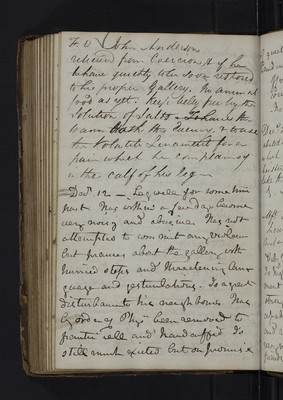 John Anderson
relieved from Coercion & if he
behave quietly to be soon restored
to his proper Gallery. No animal
food as yet. Keep belly free by the
Solution of Salts. To have the
warm Bath this Evening & to use
the Volatile Liniment for a
pain which he complains of
in the calf of his leg —
Decr. 12 — Eqwell for some time
past. Has within a few days become
very noisy and abusive. Has not
attempted to commit any violence
but prances about the gallery with
hurried steps and threatening lan-
guage and gesticulations. Is a great
disturbance to his neighbours. Has
by order of Phys. been removed to
frantic cell and handcuffed. Is
still much excited but on promise